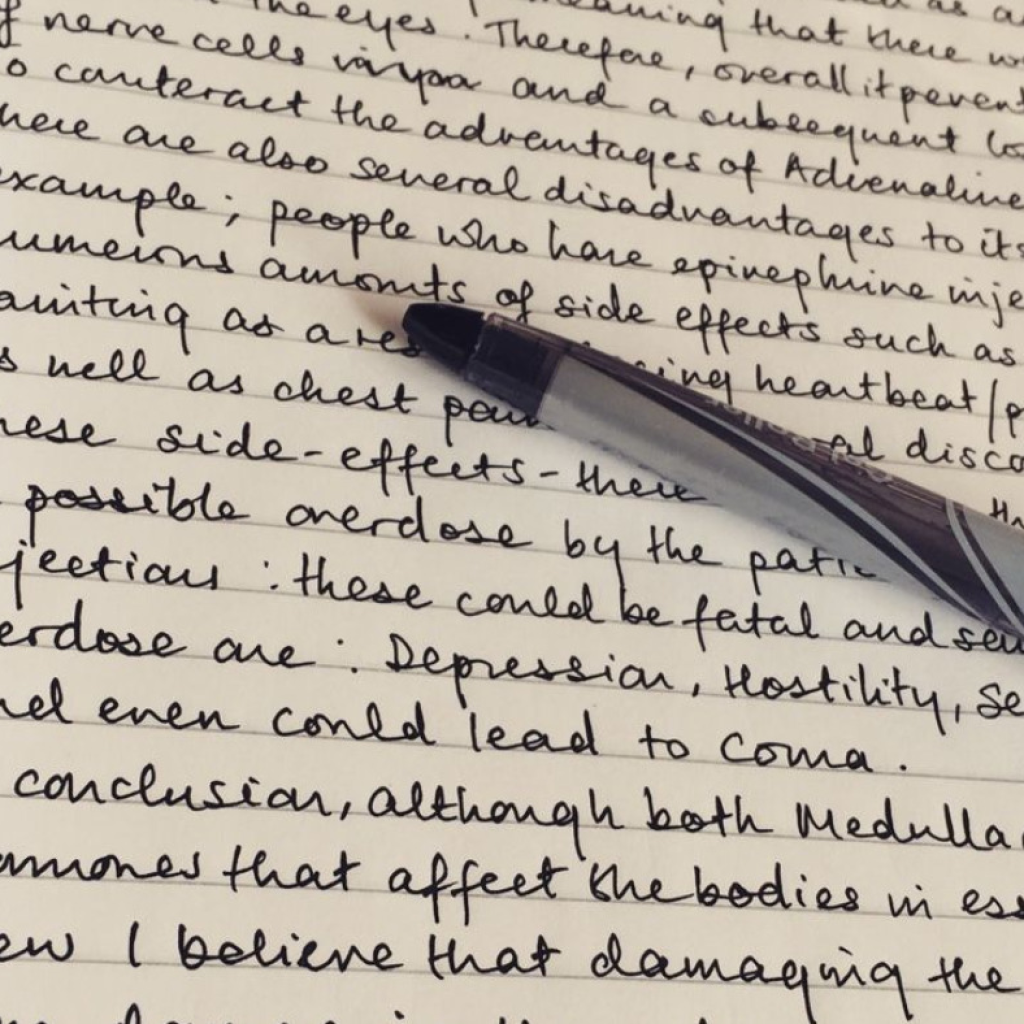 the eyes. meaning that there
nerve cells and a subsequent
counteract the advantages of Adrenaline
here are also several disadvantages to its
example; people who have epinephrine inje
numerous amounts of side effects such as
as a res heartbeat/p
s well as chest disco
hese side-effects - there
possible overdose by the patie
jections : these could be fatal and
erdose are : Depression, Hostility, Se
even could lead to coma.
conclusion, although both Medulla
that affect the bodies in ess
ew I believe that damaging the